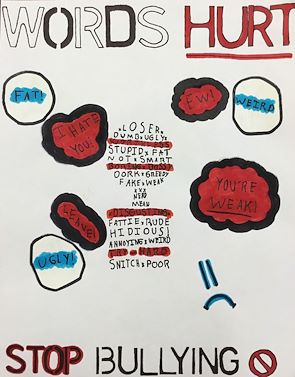 WORDS HURT
FAT!
EW!
WEIRD
I HATE
YOU!
LOSER
DUMB UGLY
STUPID FAT
NOT SMART
BORING BOSSY
DORK GREEDY
FAKE WEAK
XXX
NERD
MEAN
YOU'RE
WEAK!
LEAVE!
DISGUSTING
FATTIE RUDE
HIDIOUS
ANNOYING WEIRD
SNITCH POOR
UGLY!
STOP BULLYING